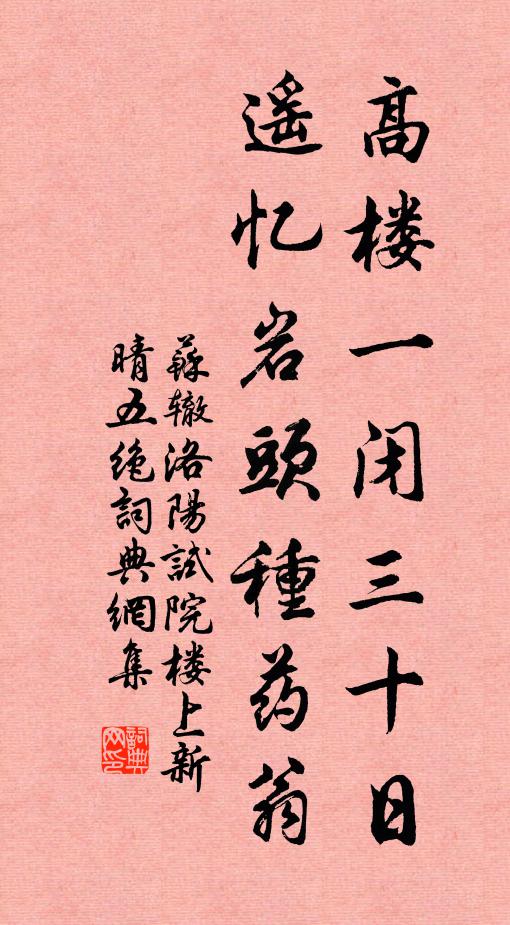 高楼一闭三十日
遥忆岩頭種药翁
蘇辙洛陽試院楼上新
晴五绝詞典網集
詞典
网印